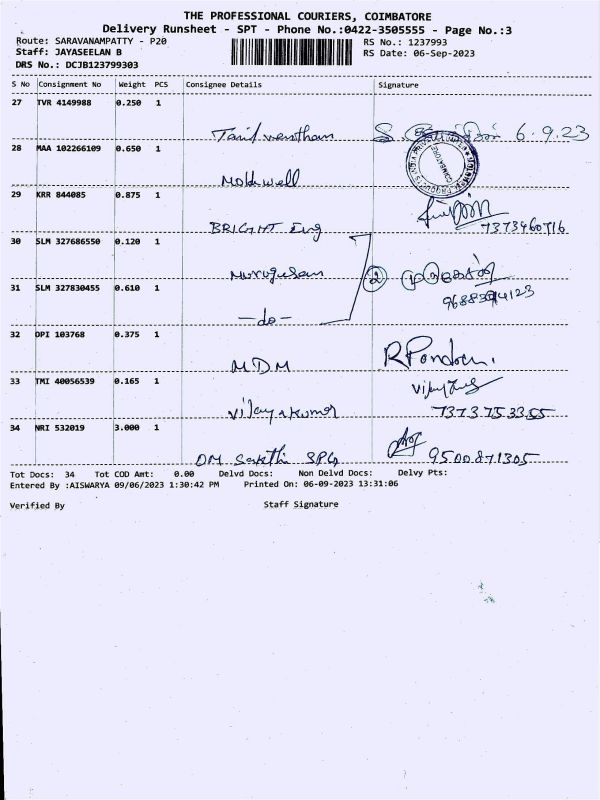 THE PROFESSIONAL COURIERS, COIMBATORE
Delivery Runsheet - SPT - Phone No.:0422-3505555 - Page No.:3
Route: SARAVANAMPATTY - P20 RS No.: 1237993
Staff: JAYASEELAN B RS Date: 06-Sep-2023
DRS No.: DCJB123799303
S No Consignment No Weight PCS Consignee Details Signature
27 TVR 4149988 0.250 1
6.9.23
28 MAA 102266109 0.650 1
COIMBATORE
Moldwell
29 KRR 844085 0.875 1
BRIGHT Eng 7373460716
30 SLM 327686550 0.120 1
Murugesan 2 முருகேசன்
31 SLM 327830455 0.610 1
-do-
32 OPI 103768 0.375 1
MDM R Pandian.
33 TMI 40056539 0.165 1
Vijayakumar 7373753355
34 NRI 532019 3.000 1
OM Sakthi SPG 9500871305
Tot Docs: 34 Tot COD Amt: 0.00 Delvd Docs: Non Delvd Docs: Delvy Pts:
Entered By :AISWARYA 09/06/2023 1:30:42 PM Printed On: 06-09-2023 13:31:06
Verified By Staff Signature